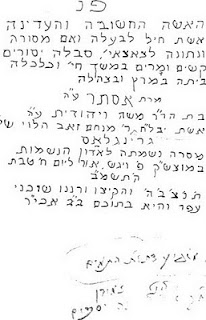 פ נ
האשה החשובה והעדינה
אשת חיל לבעלה ואם מסורה
ונתונה לצאצאי', סבלה יסורים
קשים ומרים במשך חיי' וכלכלה
ביתה במרץ ובצהלה
מרת אסתר ע"ה
בת הר"ר משה ויהודית ע"ה
אשת יבלח"ר מנחם זאב הלוי שי'
גרינגלאס
מסרה נשמתה לאדון הנשמות
במוצש"ק פ' ויגש, אור ליום ח' טבת
ה'תשמ"ב
ת'נ'צ'ב'ה' והקיצו ורננו שוכני
עפר והיא בתוכם בב"א אכי"ר